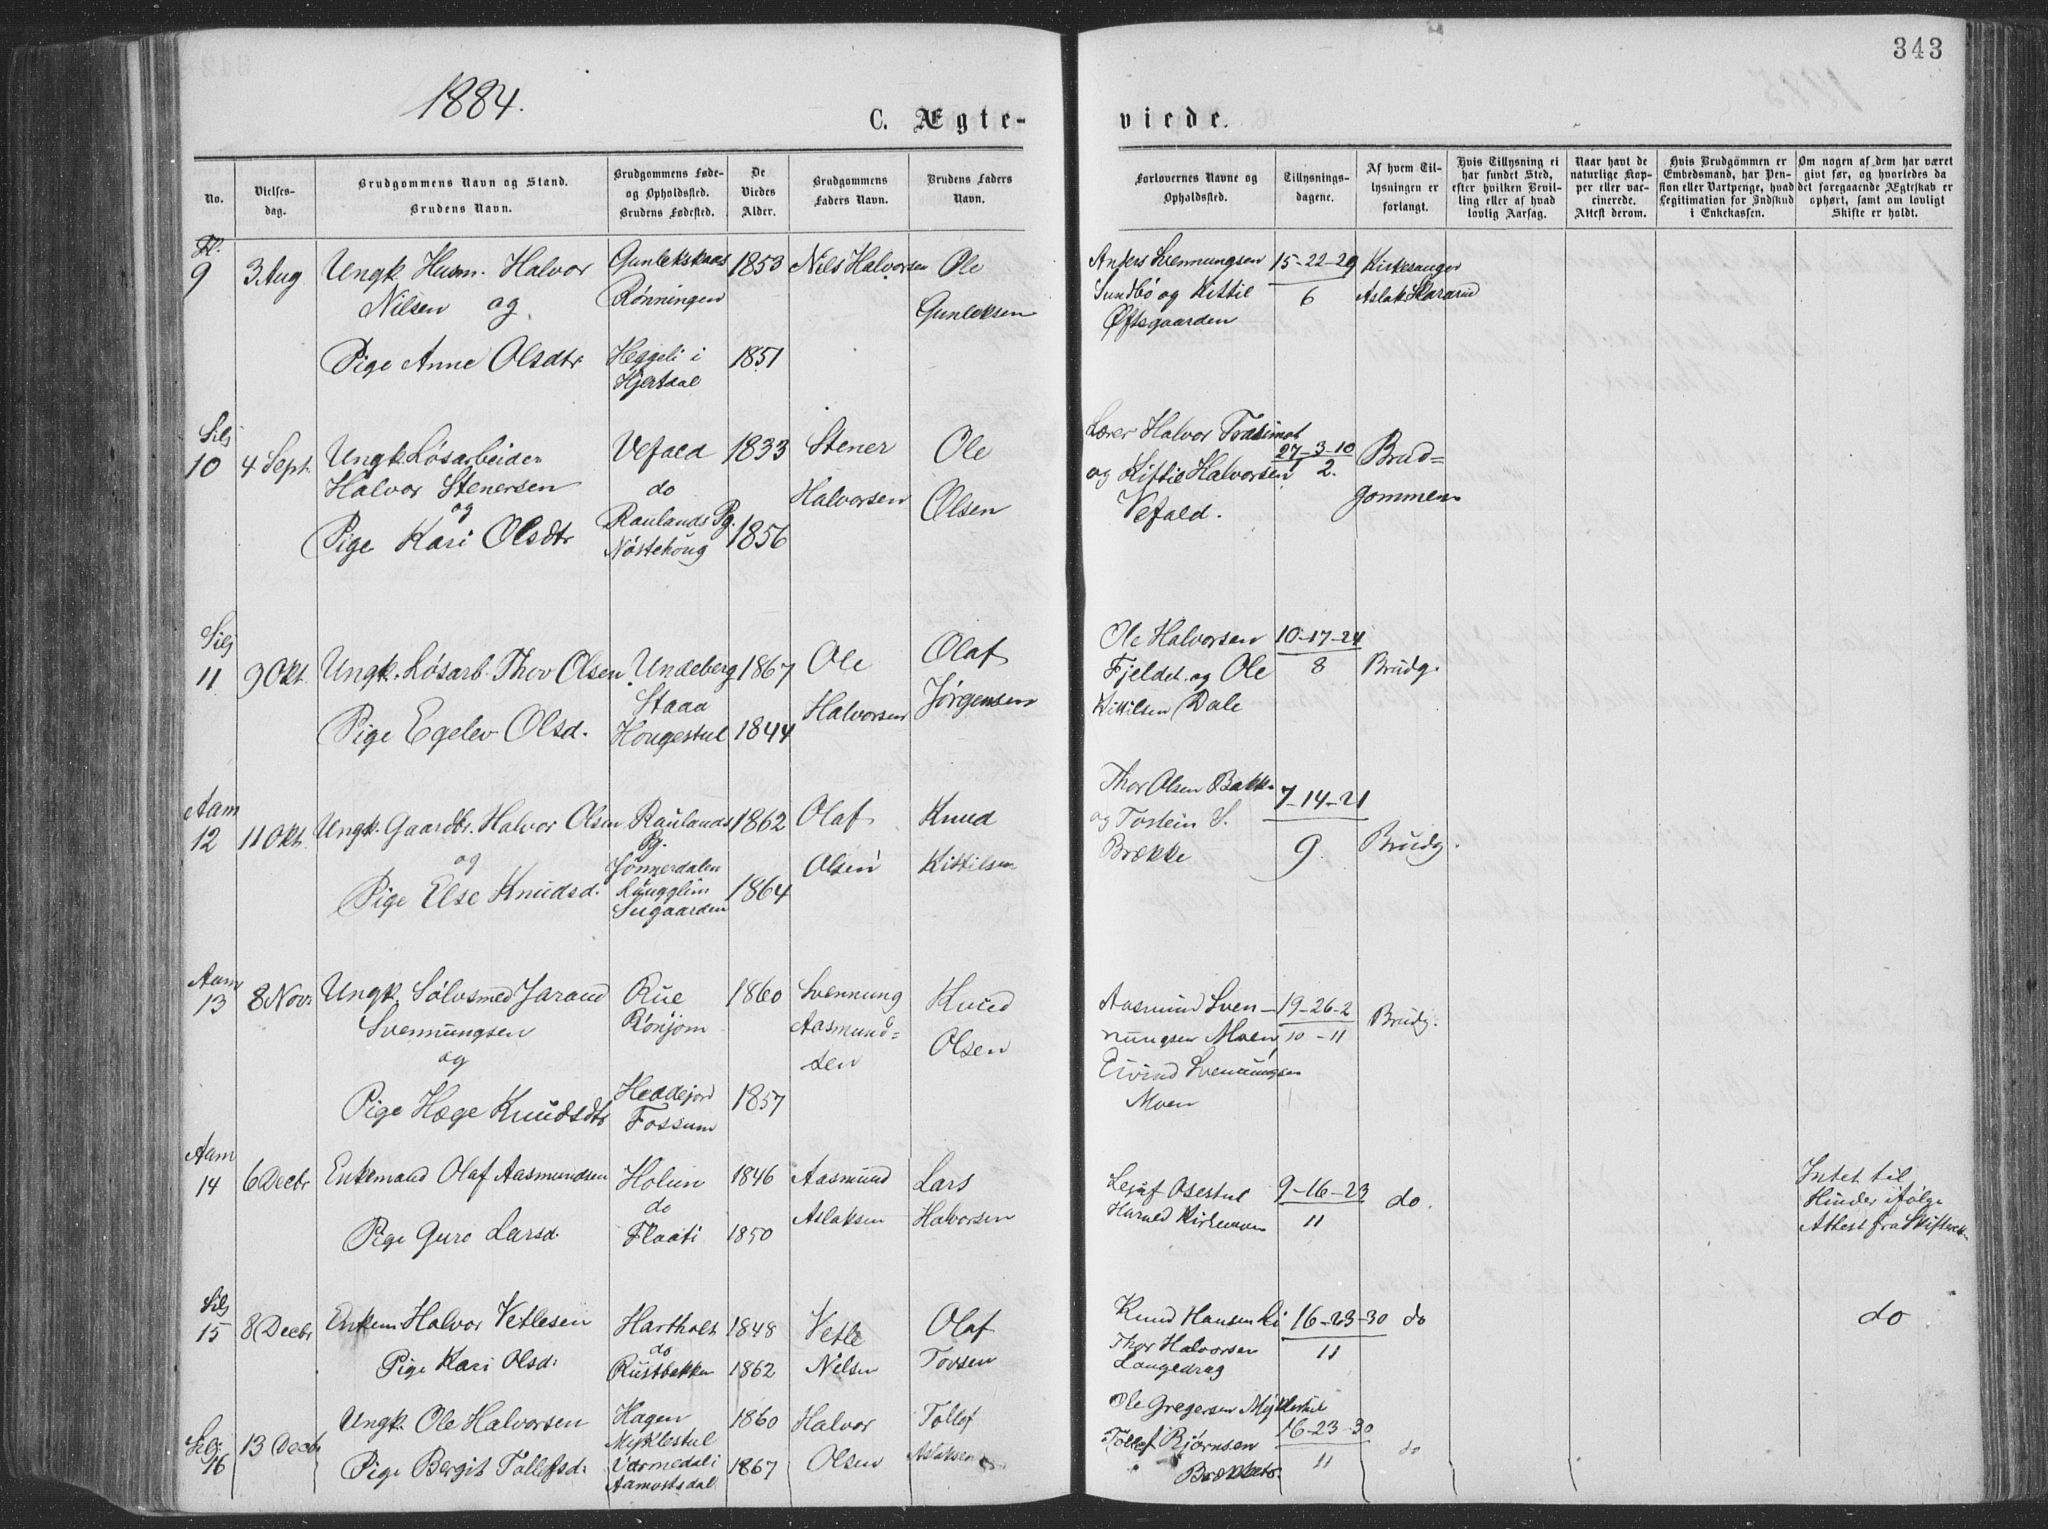 343
1884.
C. Ægte-
viede.
No.
Vielses-
dag.
Brudgommens Navn og Stand.
Brudens Navn.
Brudgommens Føde-
og Opholdssted.
Brudens Fødested.
De
Viedes
Alder.
Brudgommens
Faders Navn.
Brudens Faders
Navn.
Forlovernes Navne og
Opholdssted.
Tillysnings-
dagene.
Af hvem Til-
lysningen er
forlangt.
Hvis Tillysning ei
har fundet Sted,
efter hvilken Bevil-
ling eller af hvad
lovlig Aarsag.
Naar havt de
naturlige Kop-
per eller vac-
cinerede.
Attest derom.
Hvis Brudgommen er
Embedsmand, har Pen-
sion eller Vartpenge, hvad
Legitimation for Indskud
i Enkekassen.
Om nogen af dem har været
givt før, og hvorledes da
det foregaaende Ægteskab er
ophørt, samt om lovligt
Skifte er holdt.
9 3 Aug Ungk. Husm. Halvor
Nilsen og
Pige Anne Olsdtr
Gunlekskaas
Rønningen
Heggeli i
Hjertdal
1853
1851
Nils Halvorsen
Ole
Gunleksen
Anders Svennungsen
Sundbø og Kittil
Øftsgaarden
15-22-29
6
Kirkesanger
Aslak Skararud
Silj
10 4 Sept. Ungk. Løsarbeider
Halvor Stenersen
og
Pige Kari Olsdtr
Vefald
do
Raulands Pg.
Nøstehoug
1833
1856
Stener
Halvorsen
Ole
Olsen
Lærer Halvor
og Kittil Halvorsen
Vefald.
27-3-10
2.
Brud=
gommen
Silj
11 9 Okt. Ungk. Løsarb. Thov Olsen
Pige Egelev Olsd.
Undeberg
Staaa
Hougestul
1867
1844
Ole
Halvorsen
Olaf
Jørgensen
Ole Halvorsen
Fjeldet og Ole
Kittilsen Dale
10-17-24
8
Brudg.
Aam
12 11 Okt. Ungk. Gaardbr. Halvor Olsen
og
Pige Else Knudsd.
Raulands
Pg.
Jønnerdalen
Sugaarden
1862
1864
Olaf
Olsen
Knud
Kittilsen
Thor Olsen Bakk.
og Tostein S.
Brække
7-14-21
9.
Brudg.
Aam
13 8 Nov. Ungk. Sølvsmed Jarand
Svennungsen
og
Pige Hæge Knudsdtr
Rue
Rønjom
Heddejord
Fossum
1860
1857
Svennung
Aasmund=
sen
Knud
Olsen
Aasmund Sven-
nungsen Moen,
Eivind Svennungsen
Moen
19-26-2
10-11
Brudg.
Aam
14 6 Decbr Enkemand Olaf Aasmundsen
Pige Guro Larsd.
Holun
do
Flaati
1846
1850
Aasmund
Aslaksen
Lars
Halvorsen
Osestul
Kirkemoen
9-16-23
11
do.
Intet til
Hinder ifølge
Attest fra Skifteret-
Silj
15 8 Decbr Enkem. Halvor Vetlesen
Pige Kari Olsd:
Harthols
do
Rustbakken
1848
1862
Vetle
Nilsen
Olaf
Tovsen
Knud Hansen Li
Thor Halvorsen
Langedrag
16-23-30
11
do
do
Silj
16 13 Decbr Ungk. Ole Halvorsen
Pige Bergit Tollefsd:
Hagen
Myklestul
Varmedali
Aamottsdal
1860
1867
Halvor
Olsen
Tollef
Aslaksen
Ole Gregersen Myklestul
Tollef Bjørnsen
16-23-30
11
do